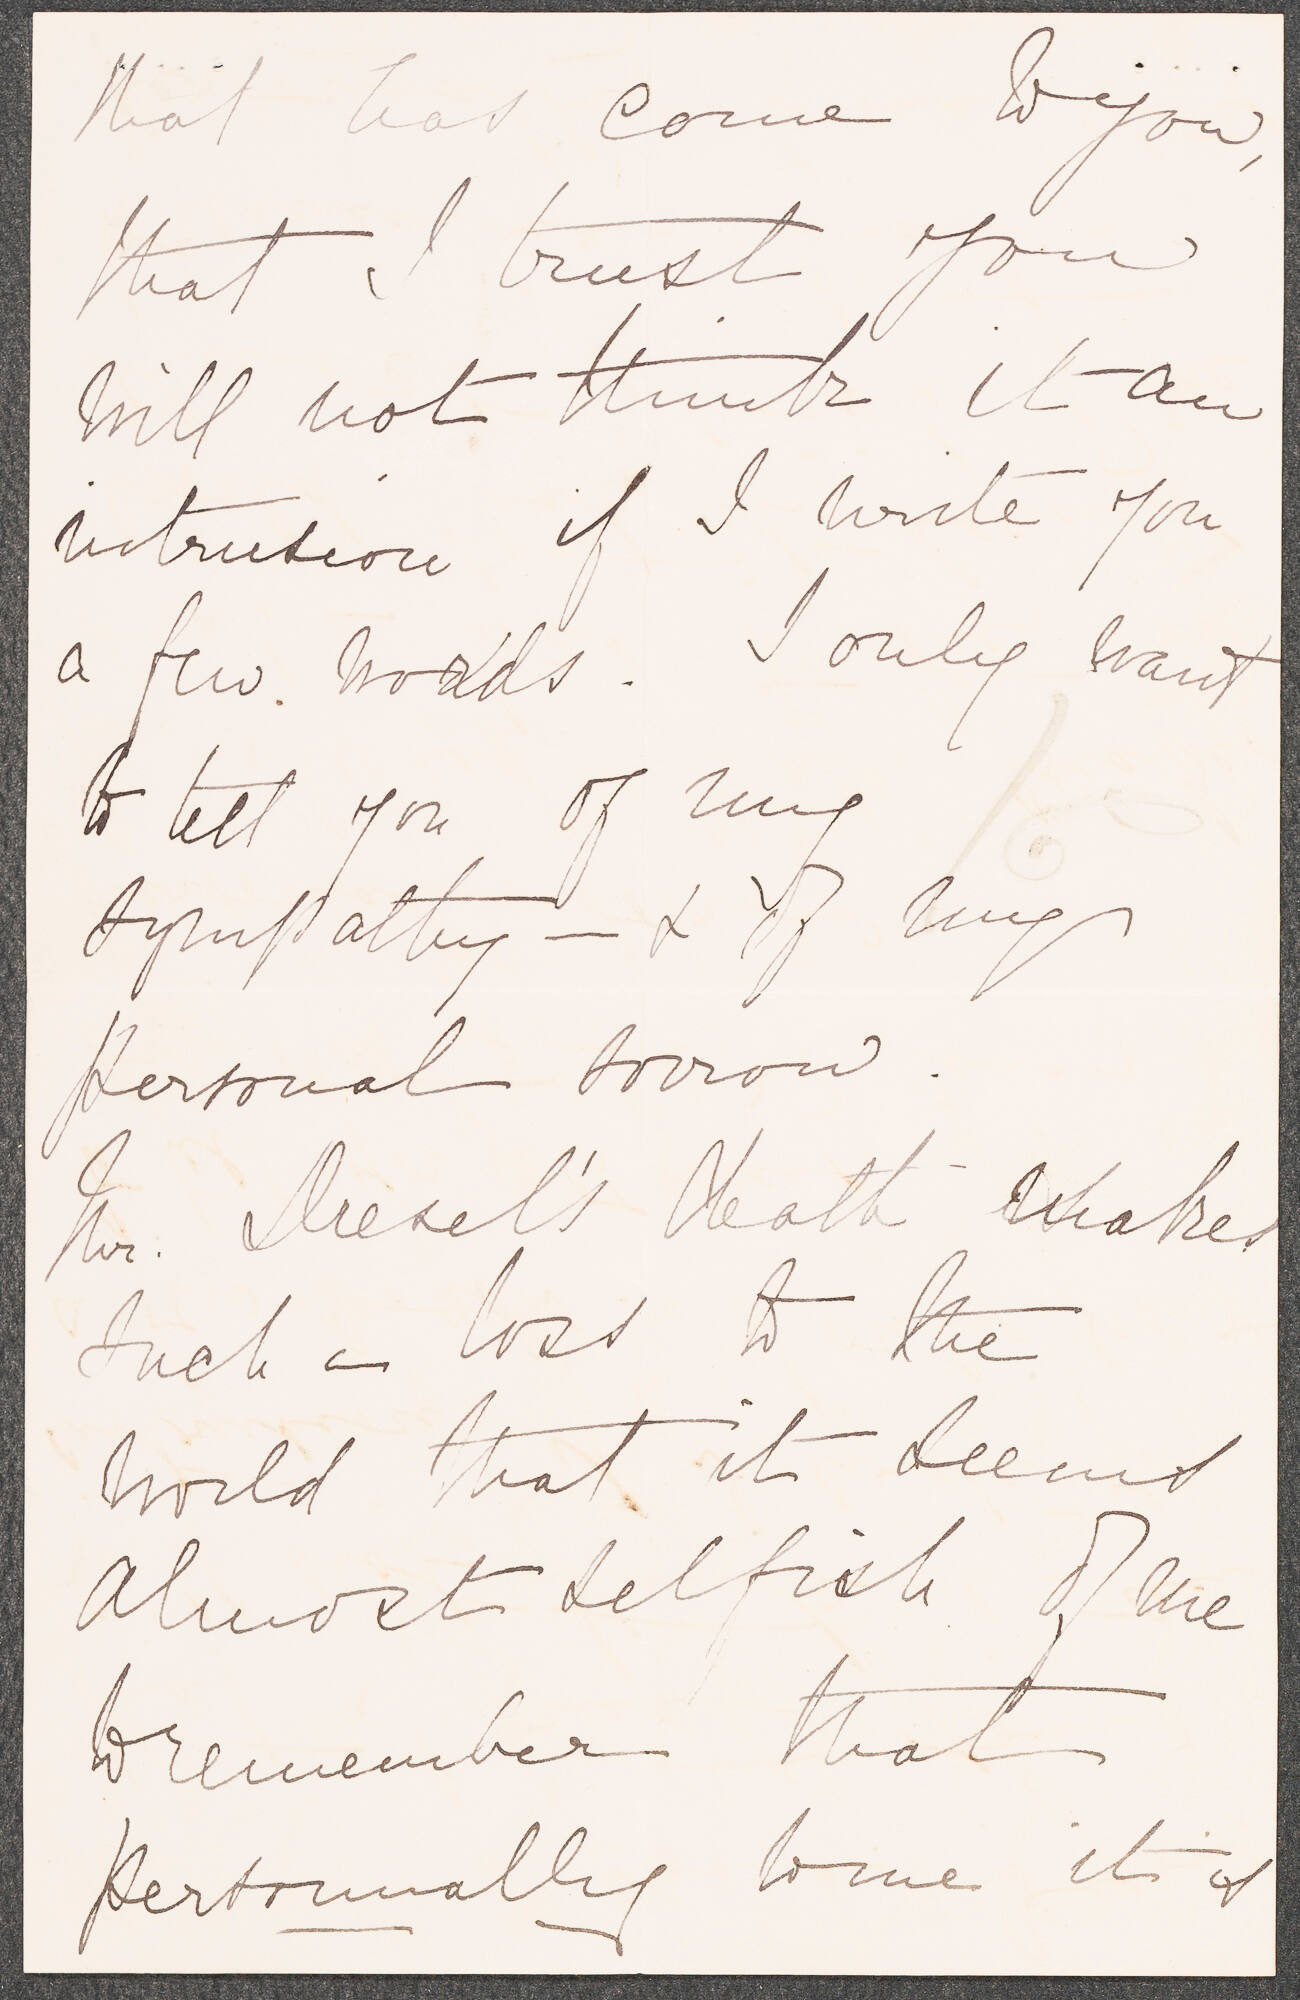 that has come to you,
that I trust you
will not think it an
intrusion if I write you
a few words. I only want
to tell you of my
sympathy — & of my
personal sorrow.
Mr. Dresel's death makes
such a loss to the
world that it seems
almost selfish of me
to remember that
personally to me it is